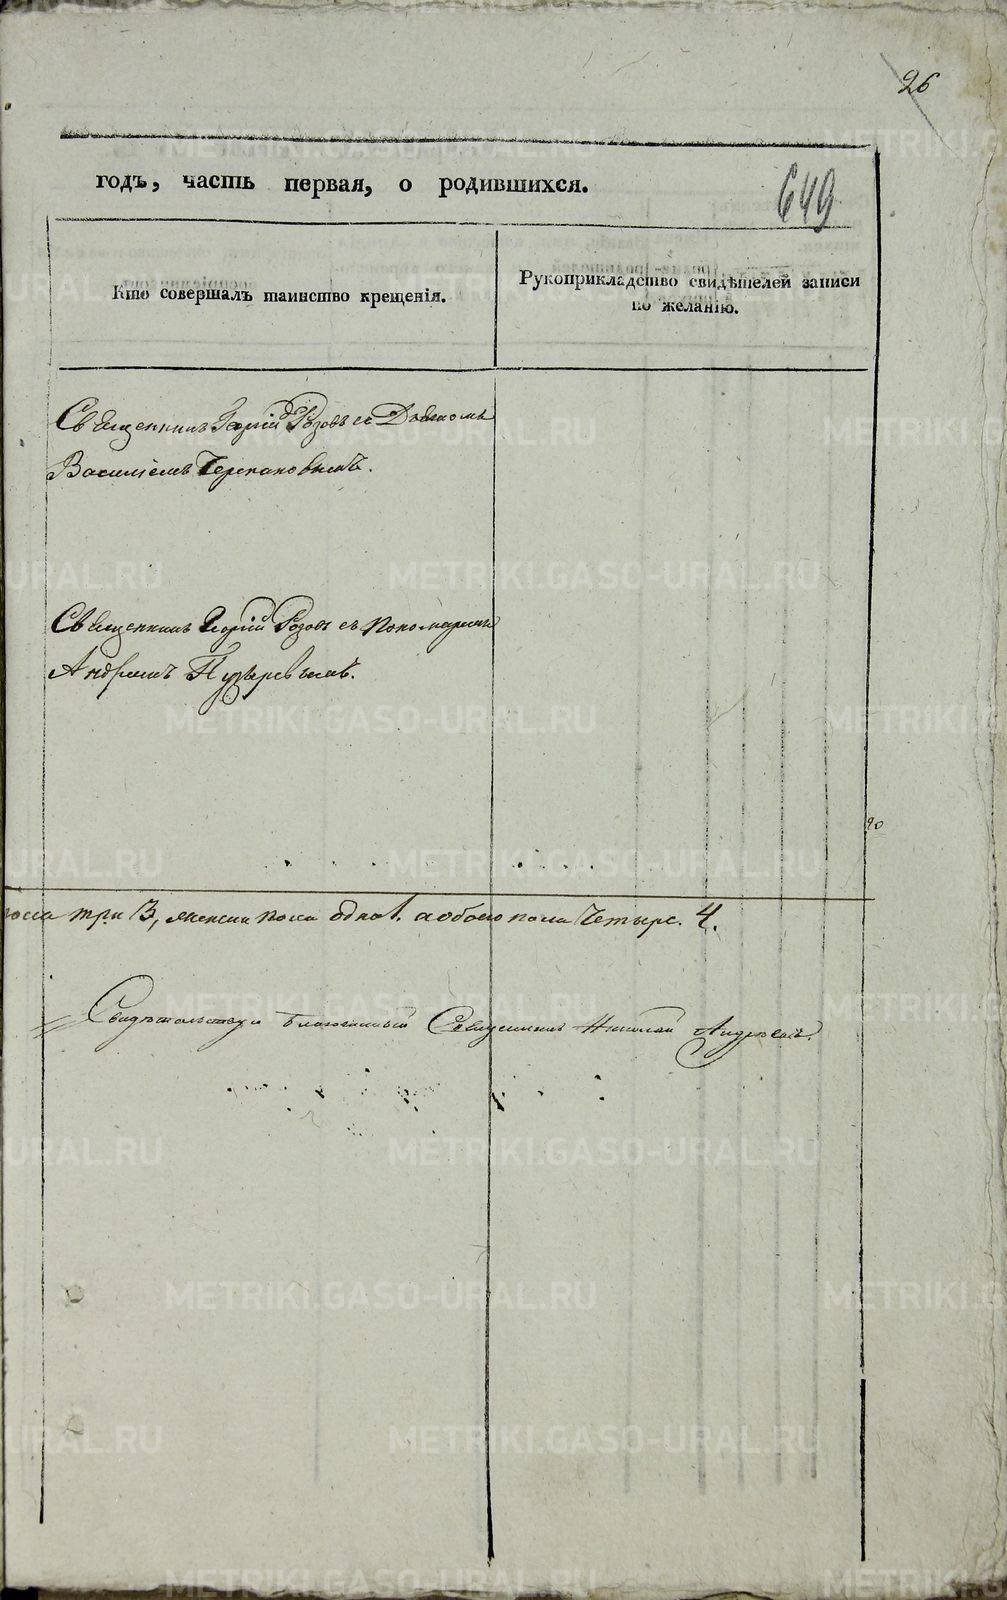 26
годъ, часть первая, о родившихся.
649
Кто совершалъ таинство крещенія.
Рукоприкладство свидѣтелей записи
по желанію.
Священникъ Георгій Розовъ съ Дьякомъ
Василіемъ Черепановымъ.
Священникъ Георгій Розовъ съ пономаремъ
Андреемъ Пузыревымъ.
20
пола три 3, женска пола одна 1. а обоего пола Четыре. 4.
Свидѣтельствую Благочинный Священникъ Николай Андреевъ.
METRIKI.GASO-URAL.RU